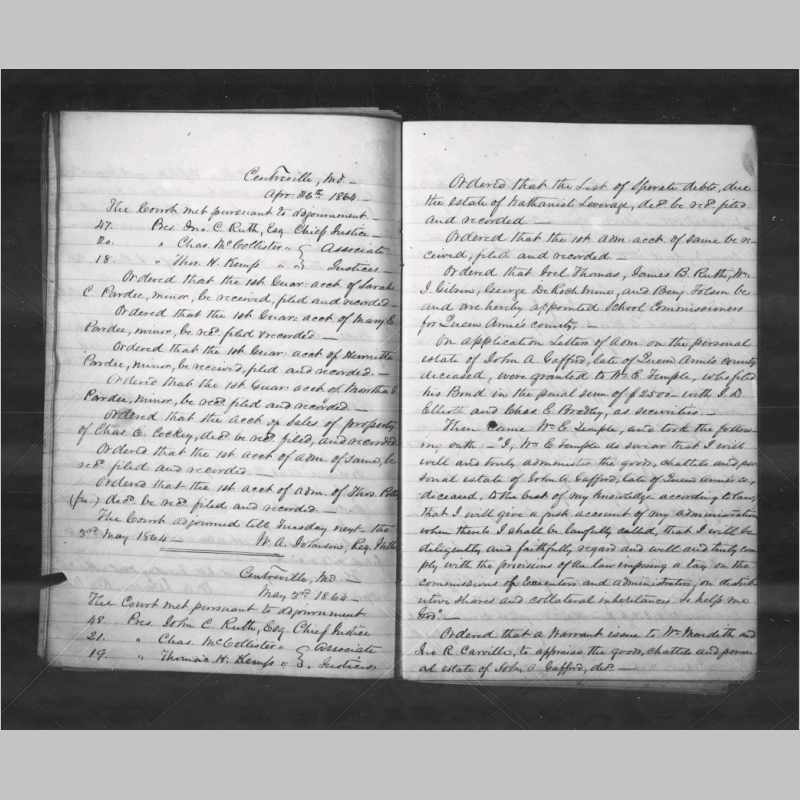 Centreville, Md. —
Apr. 26th 1864 —
The Court met pursuant to adjournment
47. Pres. Jno. C. Ruth, Esq. Chief Justice —
20. " Chas. McCollister " } Associate
18. " Thos. H. Kemp " " } Justices —
Ordered that the 1st Guar: acct of Sarah
C. Pardee, minor, be received, filed and recorded —
Ordered that the 1st Guar: acct of Mary E.
Pardee, minor, be recd. filed & recorded —
Ordered that the 1st Guar: acct of Henrietta
Pardee, minor, be received, filed and recorded. —
Ordered that the 1st Guar: acct of Martha E.
Pardee, minor, be recd. filed and recorded —
Ordered that the acct of Sales of property
of Chas. C. Cockey, decd. be recd. filed, and recorded
Ordered that the 1st acct of adm. of same, be
recd. filed and recorded —
Ordered that the 1st acct of adm. of Thos.
decd. be recd. filed and recorded —
The Court adjourned till Tuesday next the
3rd May 1864 —
W. A. Johnson, Reg. Wills
Centreville, Md. —
May 3rd 1864 —
The Court met pursuant to adjournment
48. Pres. John C. Ruth, Esq. Chief Justice
21. " Chas. McCollister " } Associate
19. " Thomas H. Kemp " } Justices
Ordered that the List of Sperate debts, due
the estate of Nathaniel Leverage, decd. be recd. filed
and recorded —
Ordered that the 1st adm. acct. of same be re-
ceived, filed and recorded —
Ordered that Joel Thomas, James B. Ruth, Wm.
J. Gibson, George De Roch and Benj. Folsom be
and are hereby appointed School Commissioners
for Queen Anne's county. —
On application Letters of adm. on the personal
estate of John A. Gafford, late of Queen Ann's county
deceased, were granted to Wm. E. Temple, who filed
his Bond in the penal sum of $2500 with
Elliott and Chas E. Bradley, as securities. —
Then came Wm. E. Temple, and took the follow-
ing oath: — "I, Wm. E. Temple do swear that I will
well and truly administer the goods, chattels and per-
sonal estate of John A. Gafford, late of Queen Anne's co.,
deceased, to the best of my knowledge according to law,
that I will give a just account of my administration
when thereto I shall be lawfully called, that I will be
diligently and faithfully regard and well and truly com-
ply with the provisions of the law imposing a tax, on the
commissions of Executors and administrators, on distrib-
utive shares and collateral inheritances. So help me
God." —
Ordered that a Warrant issue to Wm. and
R. Carville, to appraise the goods, chattels and person-
al estate of John A. Gafford, decd. —